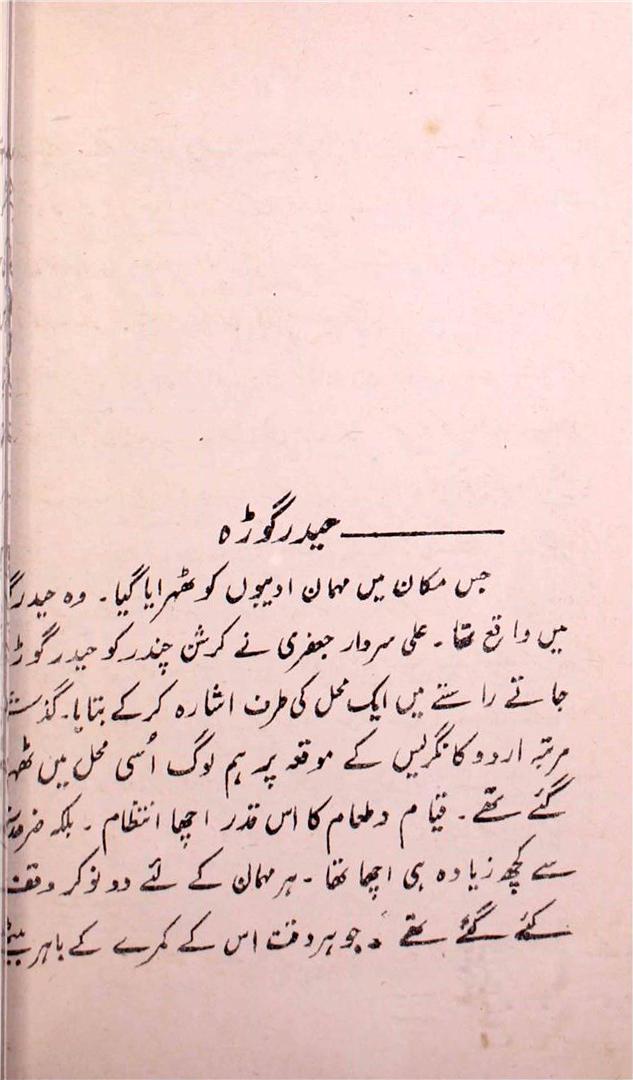 حیدر گوڑہ
جس مکان میں مہمان ادیبوں کو ٹھہرایا گیا۔ وہ حیدر گ
میں واقع تھا۔ علی سردار جعفری نے کرشن چندر کو حیدر گوڑ
جاتے راستے میں ایک محل کی طرف اشارہ کر کے بتایا۔ گذشت
مرتبہ اردو کانگریس کے موقعہ پر ہم لوگ اُسی محل میں ٹھہ
گئے تھے۔ قیام و طعام کا اس قدر اچھا انتظام۔ بلکہ ضرورت
سے کچھ زیادہ ہی اچھا تھا۔ ہر مہمان کے لئے دو نوکر وقف
کئے گئے تھے۔ جو ہر وقت اس کے کمرے کے باہر